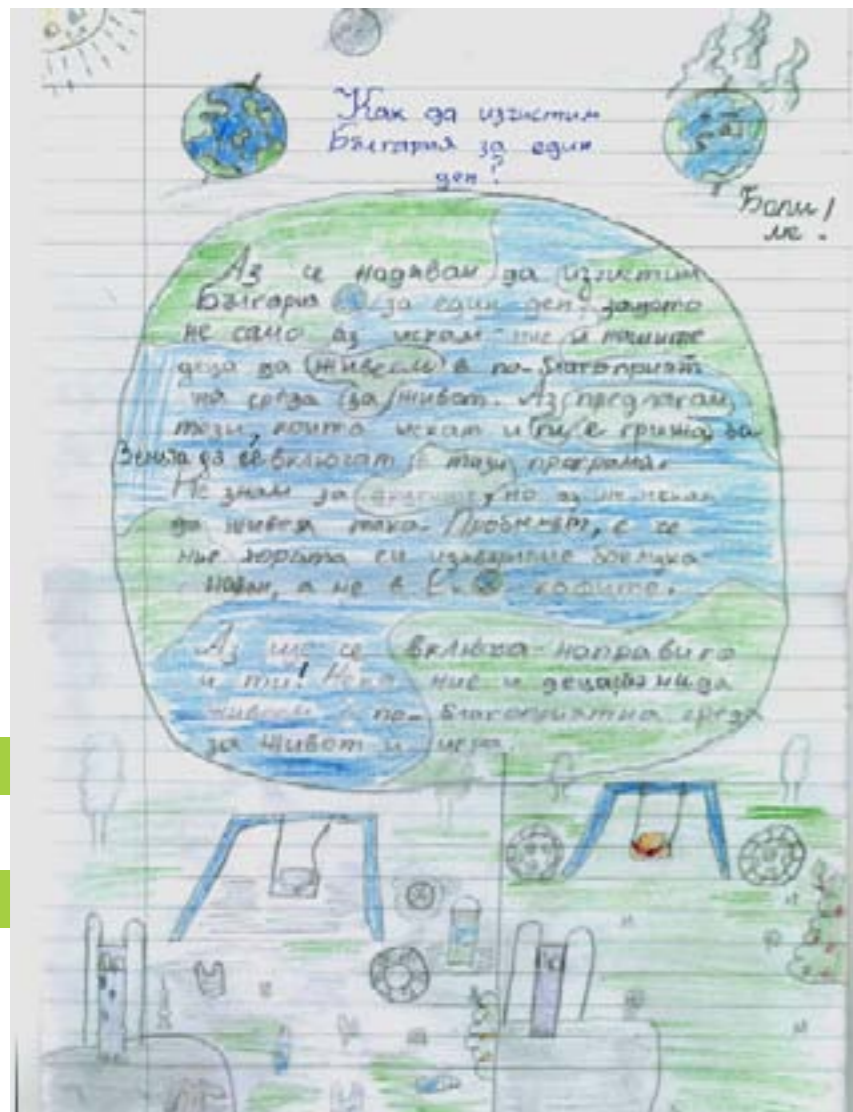 Как да изчистим
България за един
ден?
Боли!
ме.
Аз се надявам да изчистим
България за един ден, защото
не само аз искам ние и нашите
деца да живеем в по-благоприят
на среда за живот. Аз предлагам,
тези, които искат и ги е грижа за
Земята да се включат в тази програма.
Не знам за другите, но аз не искам
да живея така. Проблемът, е че
ние хората си изхвърляме боклука
навън, а не в кофите.
Аз ще се включа направи го
и ти! Нека ние и децата ни да
живеем в по-благоприятна среда
за живот и игра.